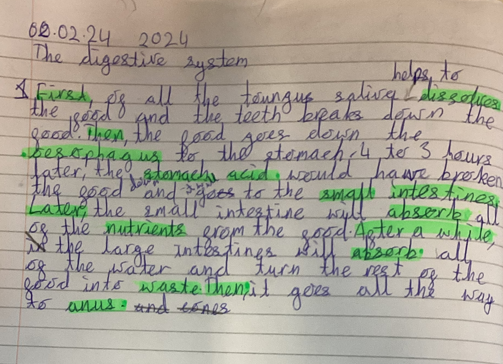 02.02.24 2024
The digestive system
helps to
First, of all the toungus saliva dissolves
the food and the teeth breaks down the
food. Then, the food goes down the
oesophagus to the stomach. 4 to 3 hours
later, the stomachs acid would have broken
the food down and goes to the small intestines.
Later, the small intestine will absorb all
of the nutrients from the food. After a while
the large intestines will absorb all
of the water and turn the rest of the
food into waste. then, it goes all the way
to anus. and